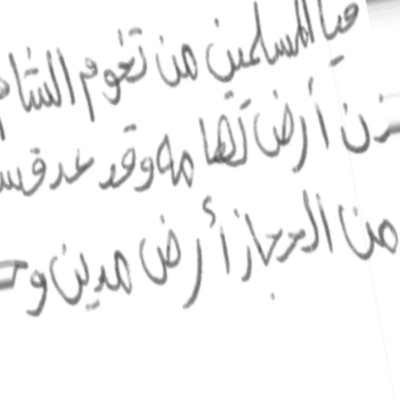 المسلمين من تخوم الشام
أرض تهامه وقد عد قس
من الحجاز أرض مدين و